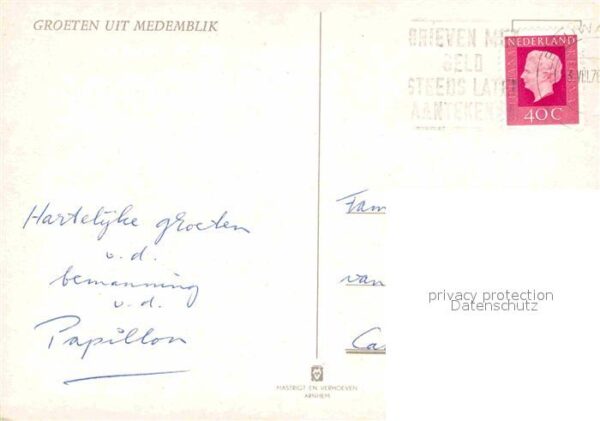 GROETEN UIT MEDEMBLIK
BRIEVEN MET
GELD
STEEDS LATEN
AANTEKENEN
NEDERLAND
40C
Hartelijke groeten
v.d.
bemanning
v.d.
Papillon
Fam
van
Ca
privacy protection
Datenschutz
MASTRIGT EN VERHOEVEN
ARNHEM